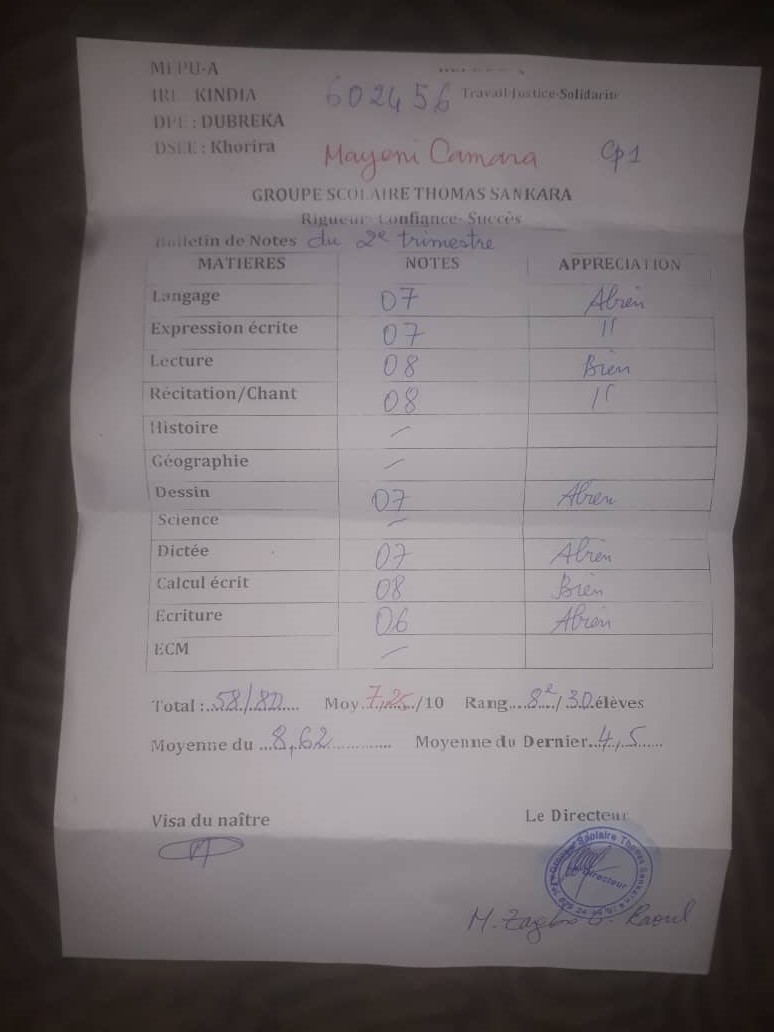 MEPU-A
IRE KINDIA 602456 Travail-Justice-Solidarité
DPE : DUBREKA
DSEE : Khorira Mayeni Camara Cp1
GROUPE SCOLAIRE THOMAS SANKARA
Rigueur- Confiance- Succès
Bulletin de Notes du 2e trimestre
MATIERES NOTES APPRECIATION
Langage 07 Abien
Expression écrite 07 "
Lecture 08 Bien
Récitation/Chant 08 "
Histoire —
Géographie —
Dessin 07 Abien
Science —
Dictée 07 Abien
Calcul écrit 08 Bien
Ecriture 06 Abien
ECM —
Total :..58/80.... Moy.7,25../10 Rang....8e../.30.élèves
Moyenne du ...8,62.............. Moyenne du Dernier..4,5......
Visa du naître Le Directeur
Groupe Scolaire Thomas Sankara
Le Directeur
M. Raoul